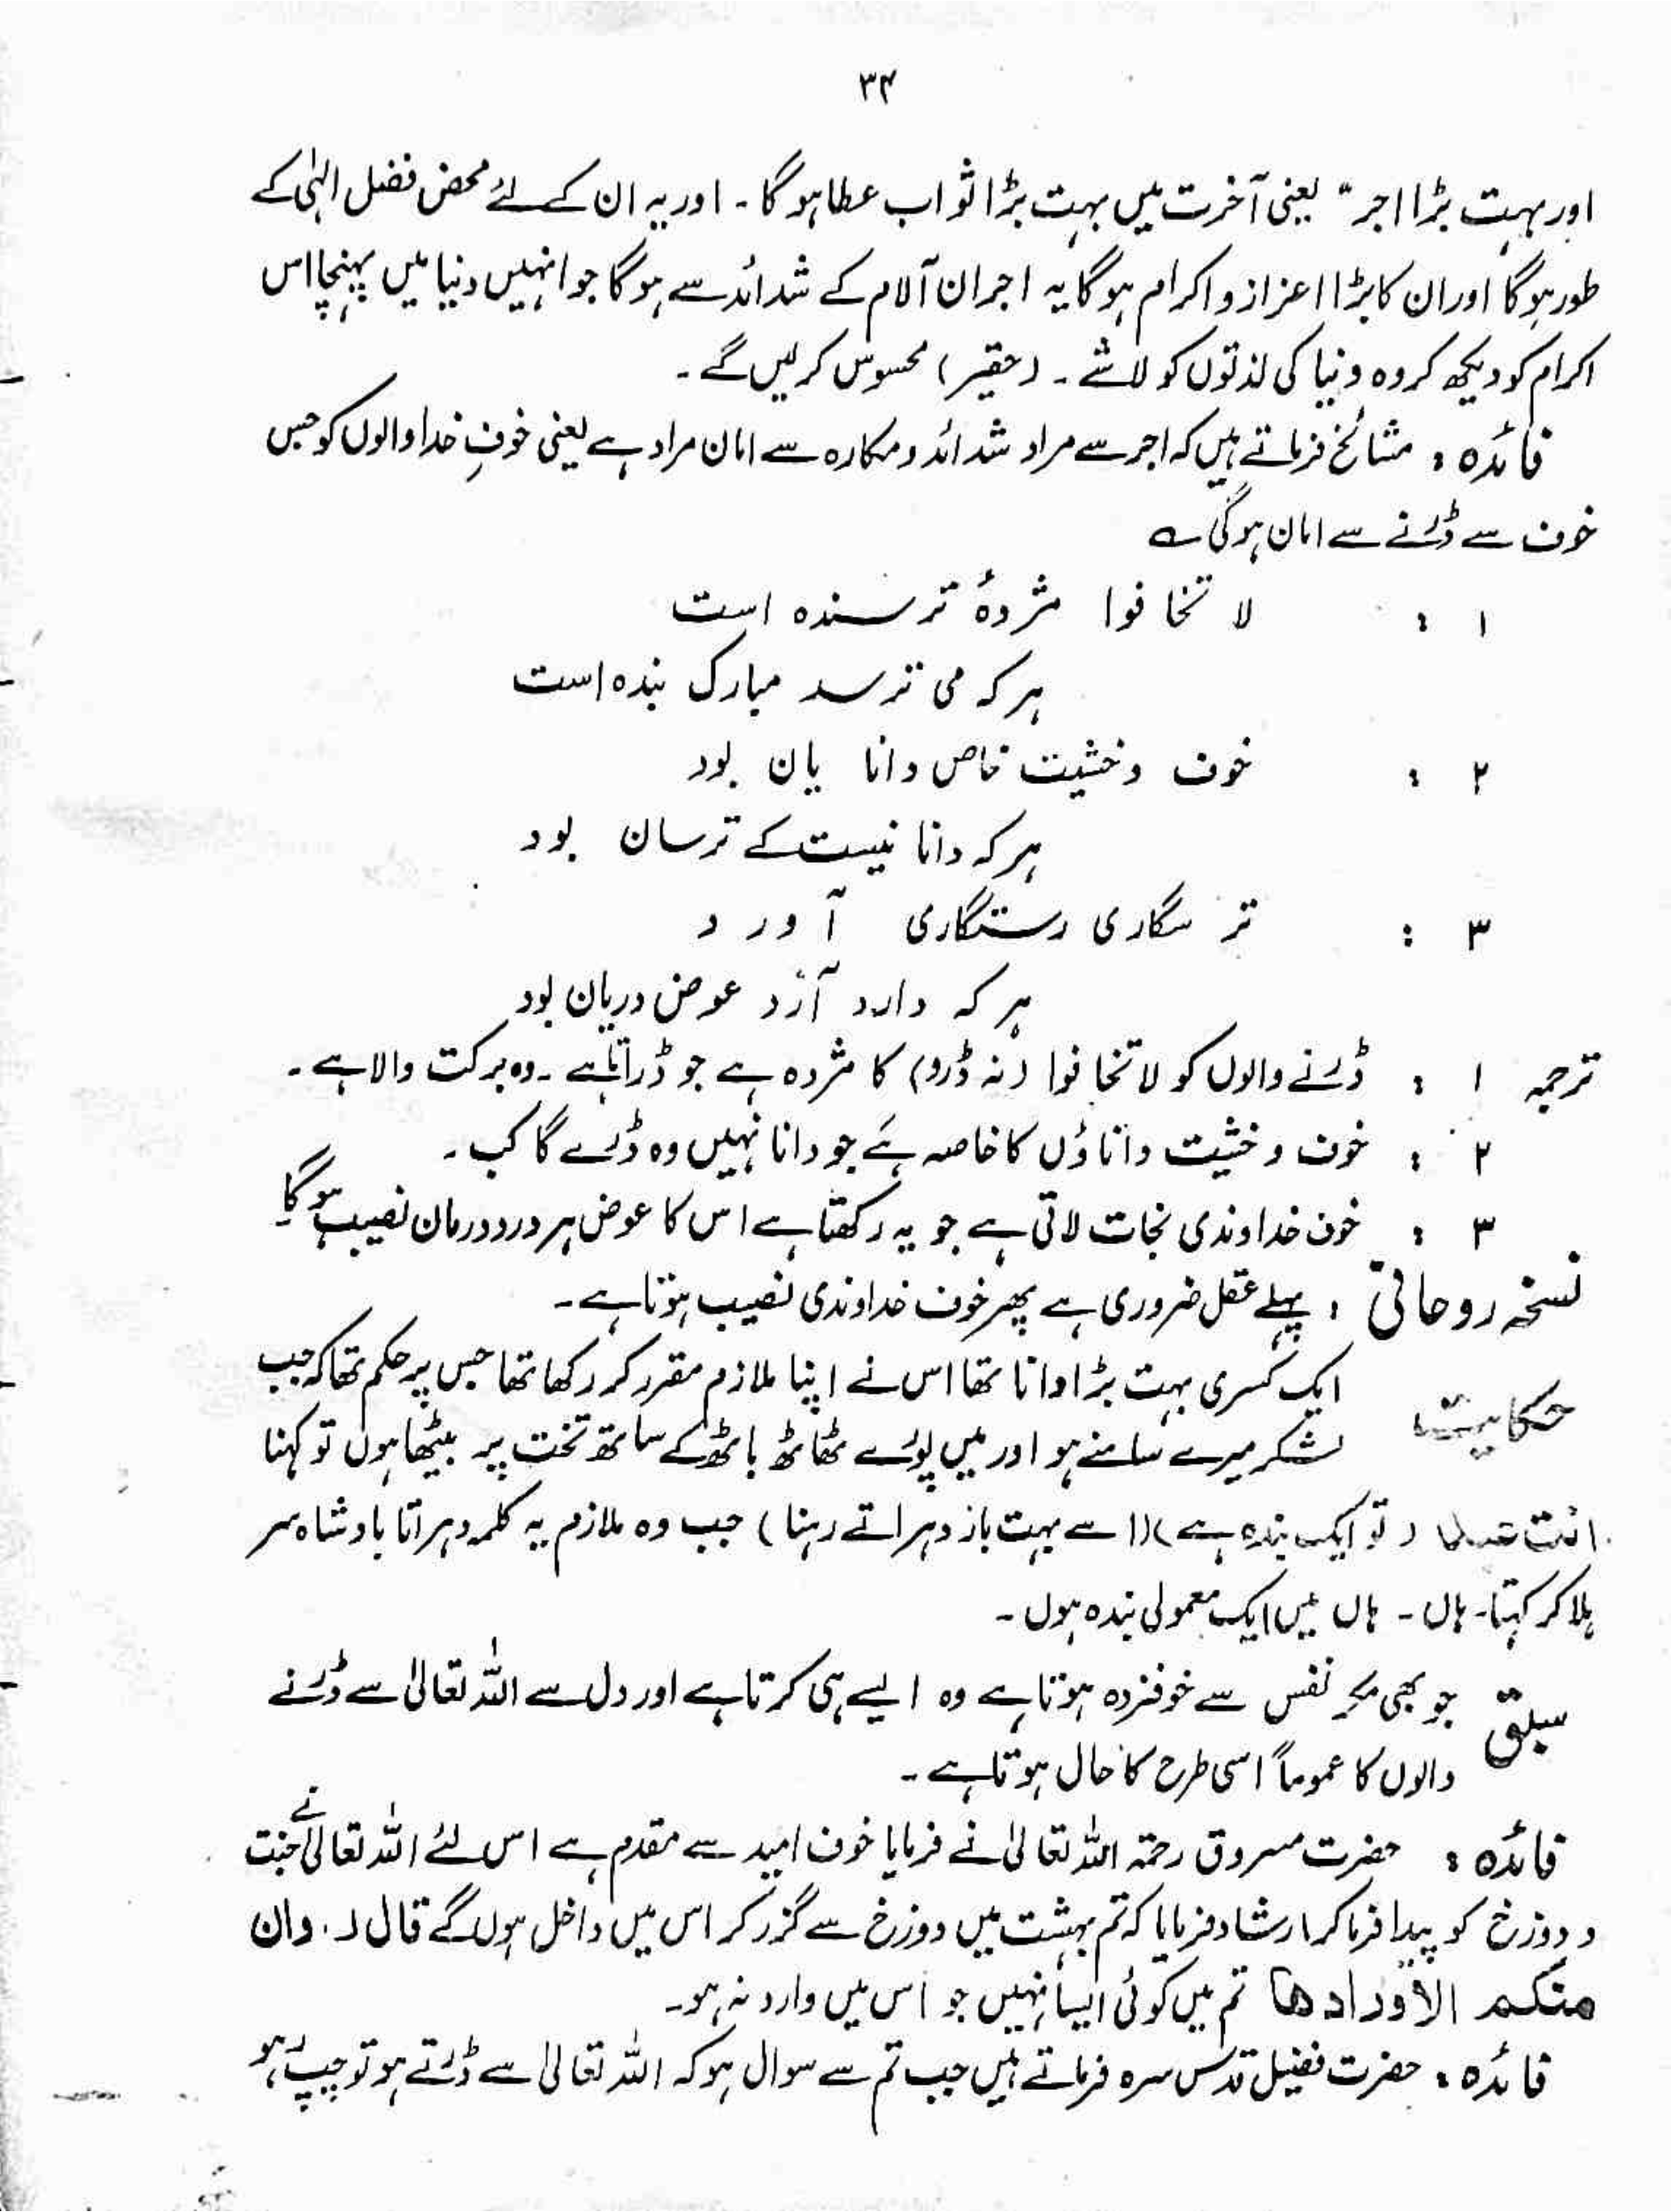 ۳۴
اور بہت بڑا اجر" یعنی آخرت میں بہت بڑا ثواب عطا ہوگا۔ اور یہ ان کے لئے محض فضل الہٰی کے
طور ہوگا اور ان کا بڑا اعزاز و اکرام ہوگا یہ اجر ان آلام کے شدائد سے ہوگا جو انہیں دنیا میں پہنچا اس
اکرام کو دیکھ کر وہ دنیا کی لذتوں کو لاشے۔ (حقیر) محسوس کرلیں گے۔
فائدہ : مشائخ فرماتے ہیں کہ اجر سے مراد شدائد و مکارہ سے امان مراد ہے یعنی خوفِ خدا والوں کو جس
خوف سے ڈرنے سے امان ہوگی ؎
۱ : لا تخافوا مژدۂ ترسندہ است
ہر کہ می ترسد مبارک بندہ است
۲ : خوف و خشیت خاص دانا یان بود
ہر کہ دانا نیست کے ترسان بود
۳ : تر سگاری رستگاری آ ور د
ہر کہ دارد آرد عوض دریان بود
ترجمہ ۱ : ڈرنے والوں کو لا تخافوا (نہ ڈرو) کا مژدہ ہے جو ڈراتا ہے۔ وہ برکت والا ہے۔
۲ : خوف و خشیت داناؤں کا خاصہ ہے جو دانا نہیں وہ ڈرے گا کب۔
۳ : خوف خداوندی نجات لاتی ہے جو یہ رکھتا ہے اس کا عوض ہر درد درمان نصیب ہوگا۔
نسخہ روحانی : پہلے عقل ضروری ہے پھر خوف خداوندی نصیب ہوتا ہے۔
حکایت ایک کسری بہت بڑا دانا تھا اس نے اپنا ملازم مقرر کر رکھا تھا جس پر حکم تھا کہ جب
لشکر میرے سامنے ہو اور میں پورے ٹھاٹھ باٹھ کے ساتھ تخت پر بیٹھا ہوں تو کہنا
انت عبد (تو ایک بندہ ہے) (اسے بہت باز دہراتے رہنا) جب وہ ملازم یہ کلمہ دہراتا بادشاہ سر
ہلا کر کہتا۔ ہاں۔ ہاں میں ایک معمولی بندہ ہوں۔
سبق جو بھی مکر نفس سے خوفزدہ ہوتا ہے وہ ایسے ہی کرتا ہے اور دل سے اللہ تعالیٰ سے ڈرنے
والوں کا عموماً اسی طرح کا حال ہوتا ہے۔
فائدہ : حضرت مسروق رحمۃ اللہ تعالیٰ نے فرمایا خوف امید سے مقدم ہے اس لئے اللہ تعالیٰ نے جنت
و دوزخ کو پیدا فرما کر ارشاد فرمایا کہ تم بہشت میں دوزخ سے گزر کر اس میں داخل ہوں گے قال د. وان
منکم الاواردھا تم میں کوئی ایسا نہیں جو اس میں وارد نہ ہو۔
فائدہ : حضرت فضیل قدس سرہ فرماتے ہیں جب تم سے سوال ہو کہ اللہ تعالیٰ سے ڈرتے ہو تو چپ رہو